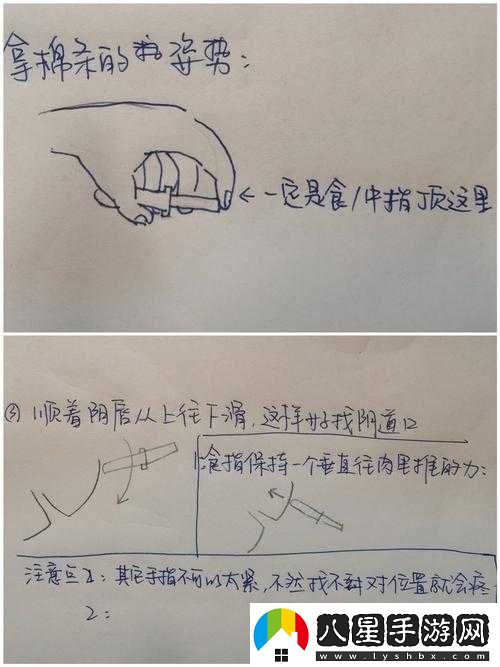 拿棉条的姿势：
←一定是食/中指顶这里
③顺着阴唇从上往下滑，这样好找阴道口
食指保持一个垂直往肉里推的力：
注意点1：其它手指不可以太紧，不然找不对位置就会疼
2：
八星手游网
www.lyshbx.com